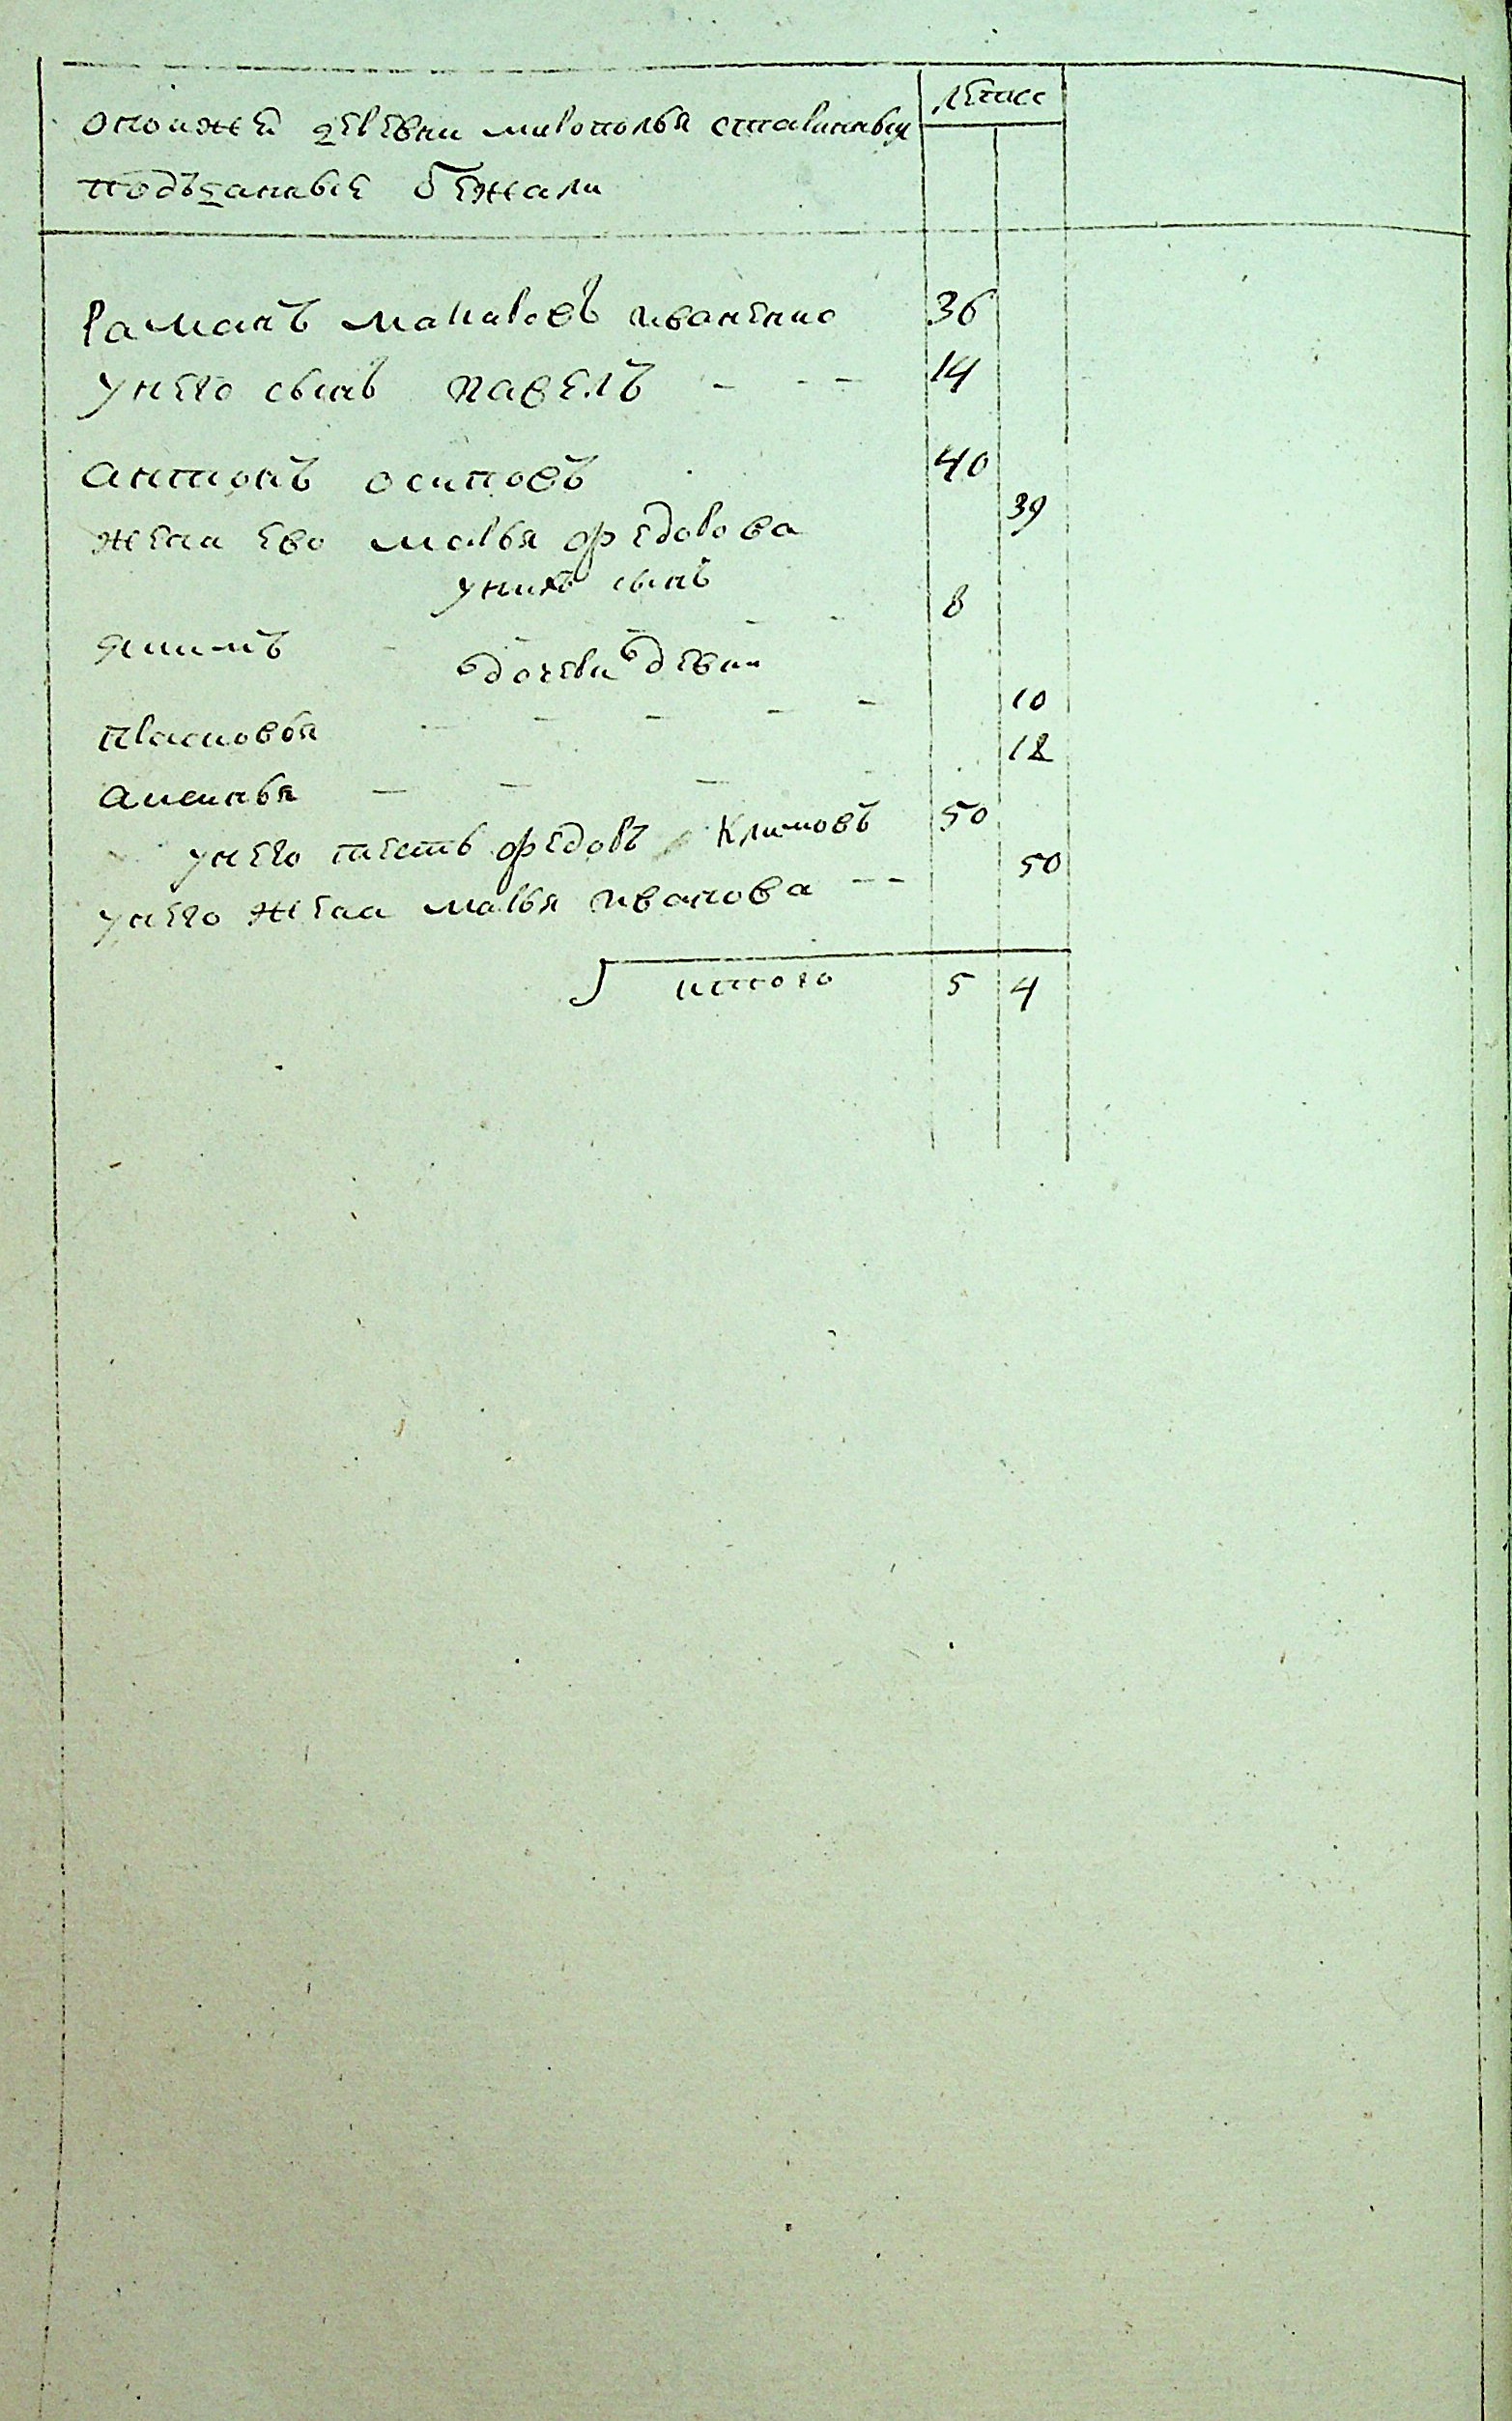 Онойже деревни Марополья старинныя лета
подданные бежали
Раманъ макаровъ иваненко 36
унего сынъ павелъ - - - 14
антонъ осиповъ 40
жена ево марья федорова 39
унихъ сынъ
якимъ - - - - 8
дочери девки
прасковья - - - - - 10
аксинья - - - 12
унего тесть федоръ Климовъ 50
унего жена марья иванова - - 50
итого 5 4